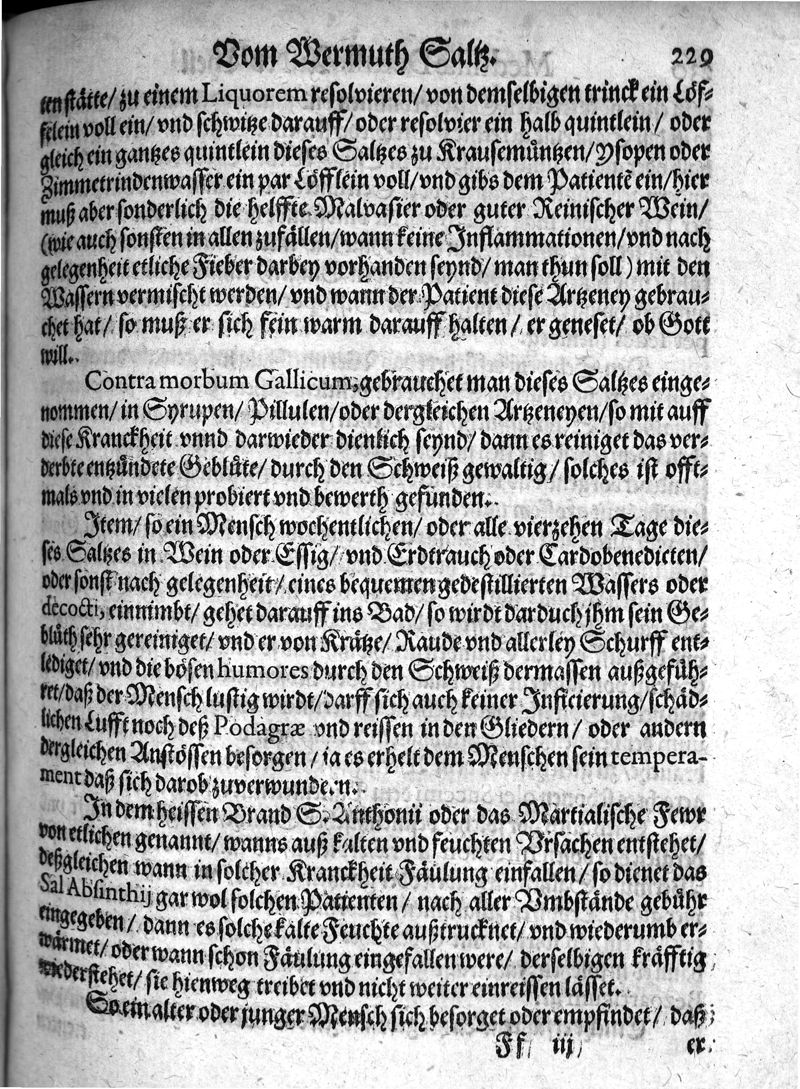 Vom Wermuth Saltz. 229
ten stätte/ zu einem Liquorem resolvieren/ von demselbigen trinck ein Löf-
felein voll ein/ vnd schwitze darauff/ oder resolvier ein halb quintlein/ oder
gleich ein gantzes quintlein dieses Saltzes zu Krausemüntzen/ Ysopen oder
Zimmetrindenwasser ein par Löfflein voll/ vnd gibs dem Patientē ein/ hier
muß aber sonderlich die helffte Malvasier oder guter Reinischer Wein/
(wie auch sonsten in allen zufällen/ wann keine Inflammationen/ vnd nach
gelegenheit etliche Fieber darbey vorhanden seynd/ man thun soll) mit den
Wassern vermischt werden/ vnd wann der Patient diese Artzeney gebrau-
chet hat/ so muß er sich fein warm darauff halten/ er geneset/ ob Gott
will.
Contra morbum Gallicum, gebrauchet man dieses Saltzes einge-
nommen/ in Syrupen/ Pillulen/ oder dergleichen Artzeneyen/ so mit auff
diese Kranckheit vnnd darwieder dienlich seynd/ dann es reiniget das ver-
derbte entzündete Geblüte/ durch den Schweiß gewaltig/ solches ist offt-
mals vnd in vielen probiert vnd bewerth gefunden.
Item/ so ein Mensch wochentlichen/ oder alle vierzehen Tage die-
ses Saltzes in Wein oder Essig/ vnd Erdtrauch oder Cardobenedicten/
oder sonst nach gelegenheit/ eines bequemen gedestillierten Wassers oder
decocti, einnimbt/ gehet darauff ins Bad/ so wirdt darduch jhm sein Ge-
blüth sehr gereiniget/ vnd er von Krätze/ Raude vnd allerley Schurff ent-
lediget/ vnd die bösen humores durch den Schweiß dermassen außgefüh-
ret/ daß der Mensch lustig wirdt/ darff sich auch keiner Inficierung/ schäd-
lichen Lufft noch deß Podagræ vnd reissen in den Gliedern/ oder andern
dergleichen Anstössen besorgen/ ja es erhelt dem Menschen sein tempera-
ment daß sich darob zuverwundern.
In dem heissen Brand S. Anthonii oder das Martialische Fewr
von etlichen genannt/ wanns auß kalten vnd feuchten Vrsachen entstehet/
deßgleichen wann in solcher Kranckheit Fäulung einfallen/ so dienet das
Sal Absinthij gar wol solchen Patienten/ nach aller Vmbstände gebühr
eingegeben/ dann es solche kalte Feuchte außtrucknet/ vnd wiederumb er-
wärmet/ oder wann schon Fäulung eingefallen were/ derselbigen kräfftig
wiederstehet/ sie hienweg treibet vnd nicht weiter einreissen lässet.
So ein alter oder junger Mensch sich besorget oder empfindet/ daß
Ff iij er